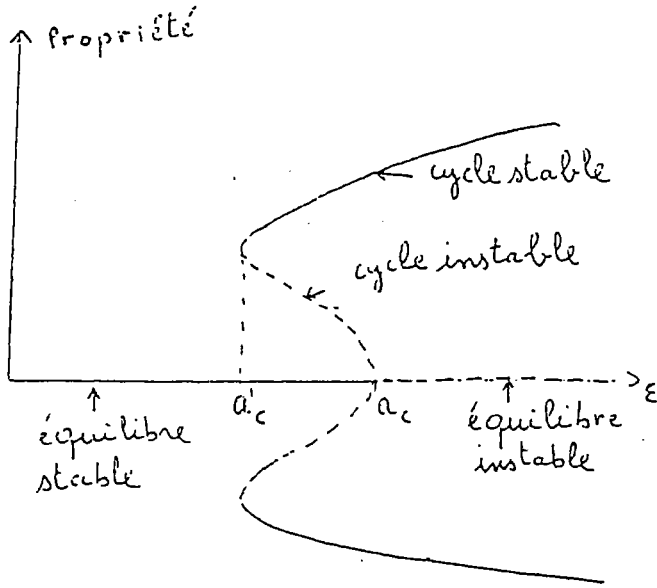 Propriété
cycle stable
cycle instable
a'c
ac
ε
équilibre
stable
équilibre
instable